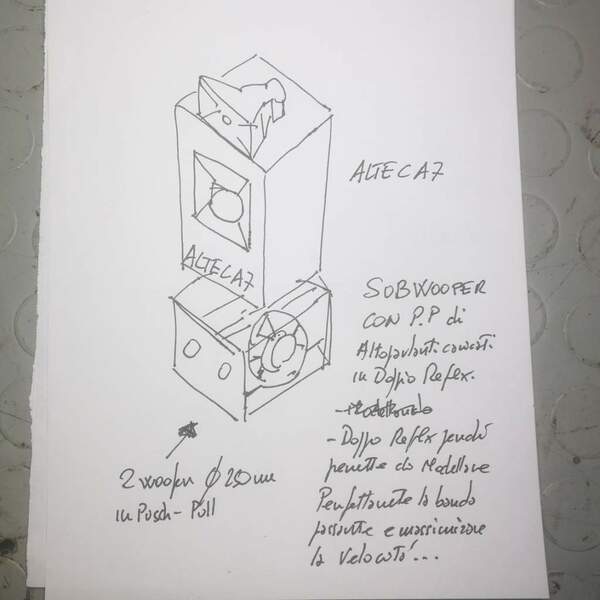 ALTEC A7
ALTEC A7
SUBWOOFER
CON P.P di
Altoparlanti caricati
in Doppio Reflex.
- Doppo Reflex perché
permette di Modellare
Perfettamente la banda
passante e massimizzare
la Velocità...
2 woofer Ø 250 mm
in Pusch-Pull